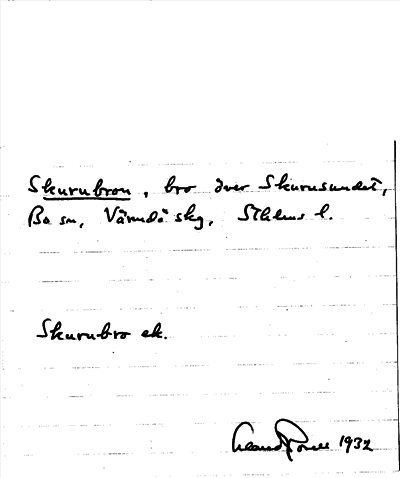 Skurubron, bro över Skurusundet,
Bo sn, Värmdö skg, Sthlms l.
Skurubro ek.
1932